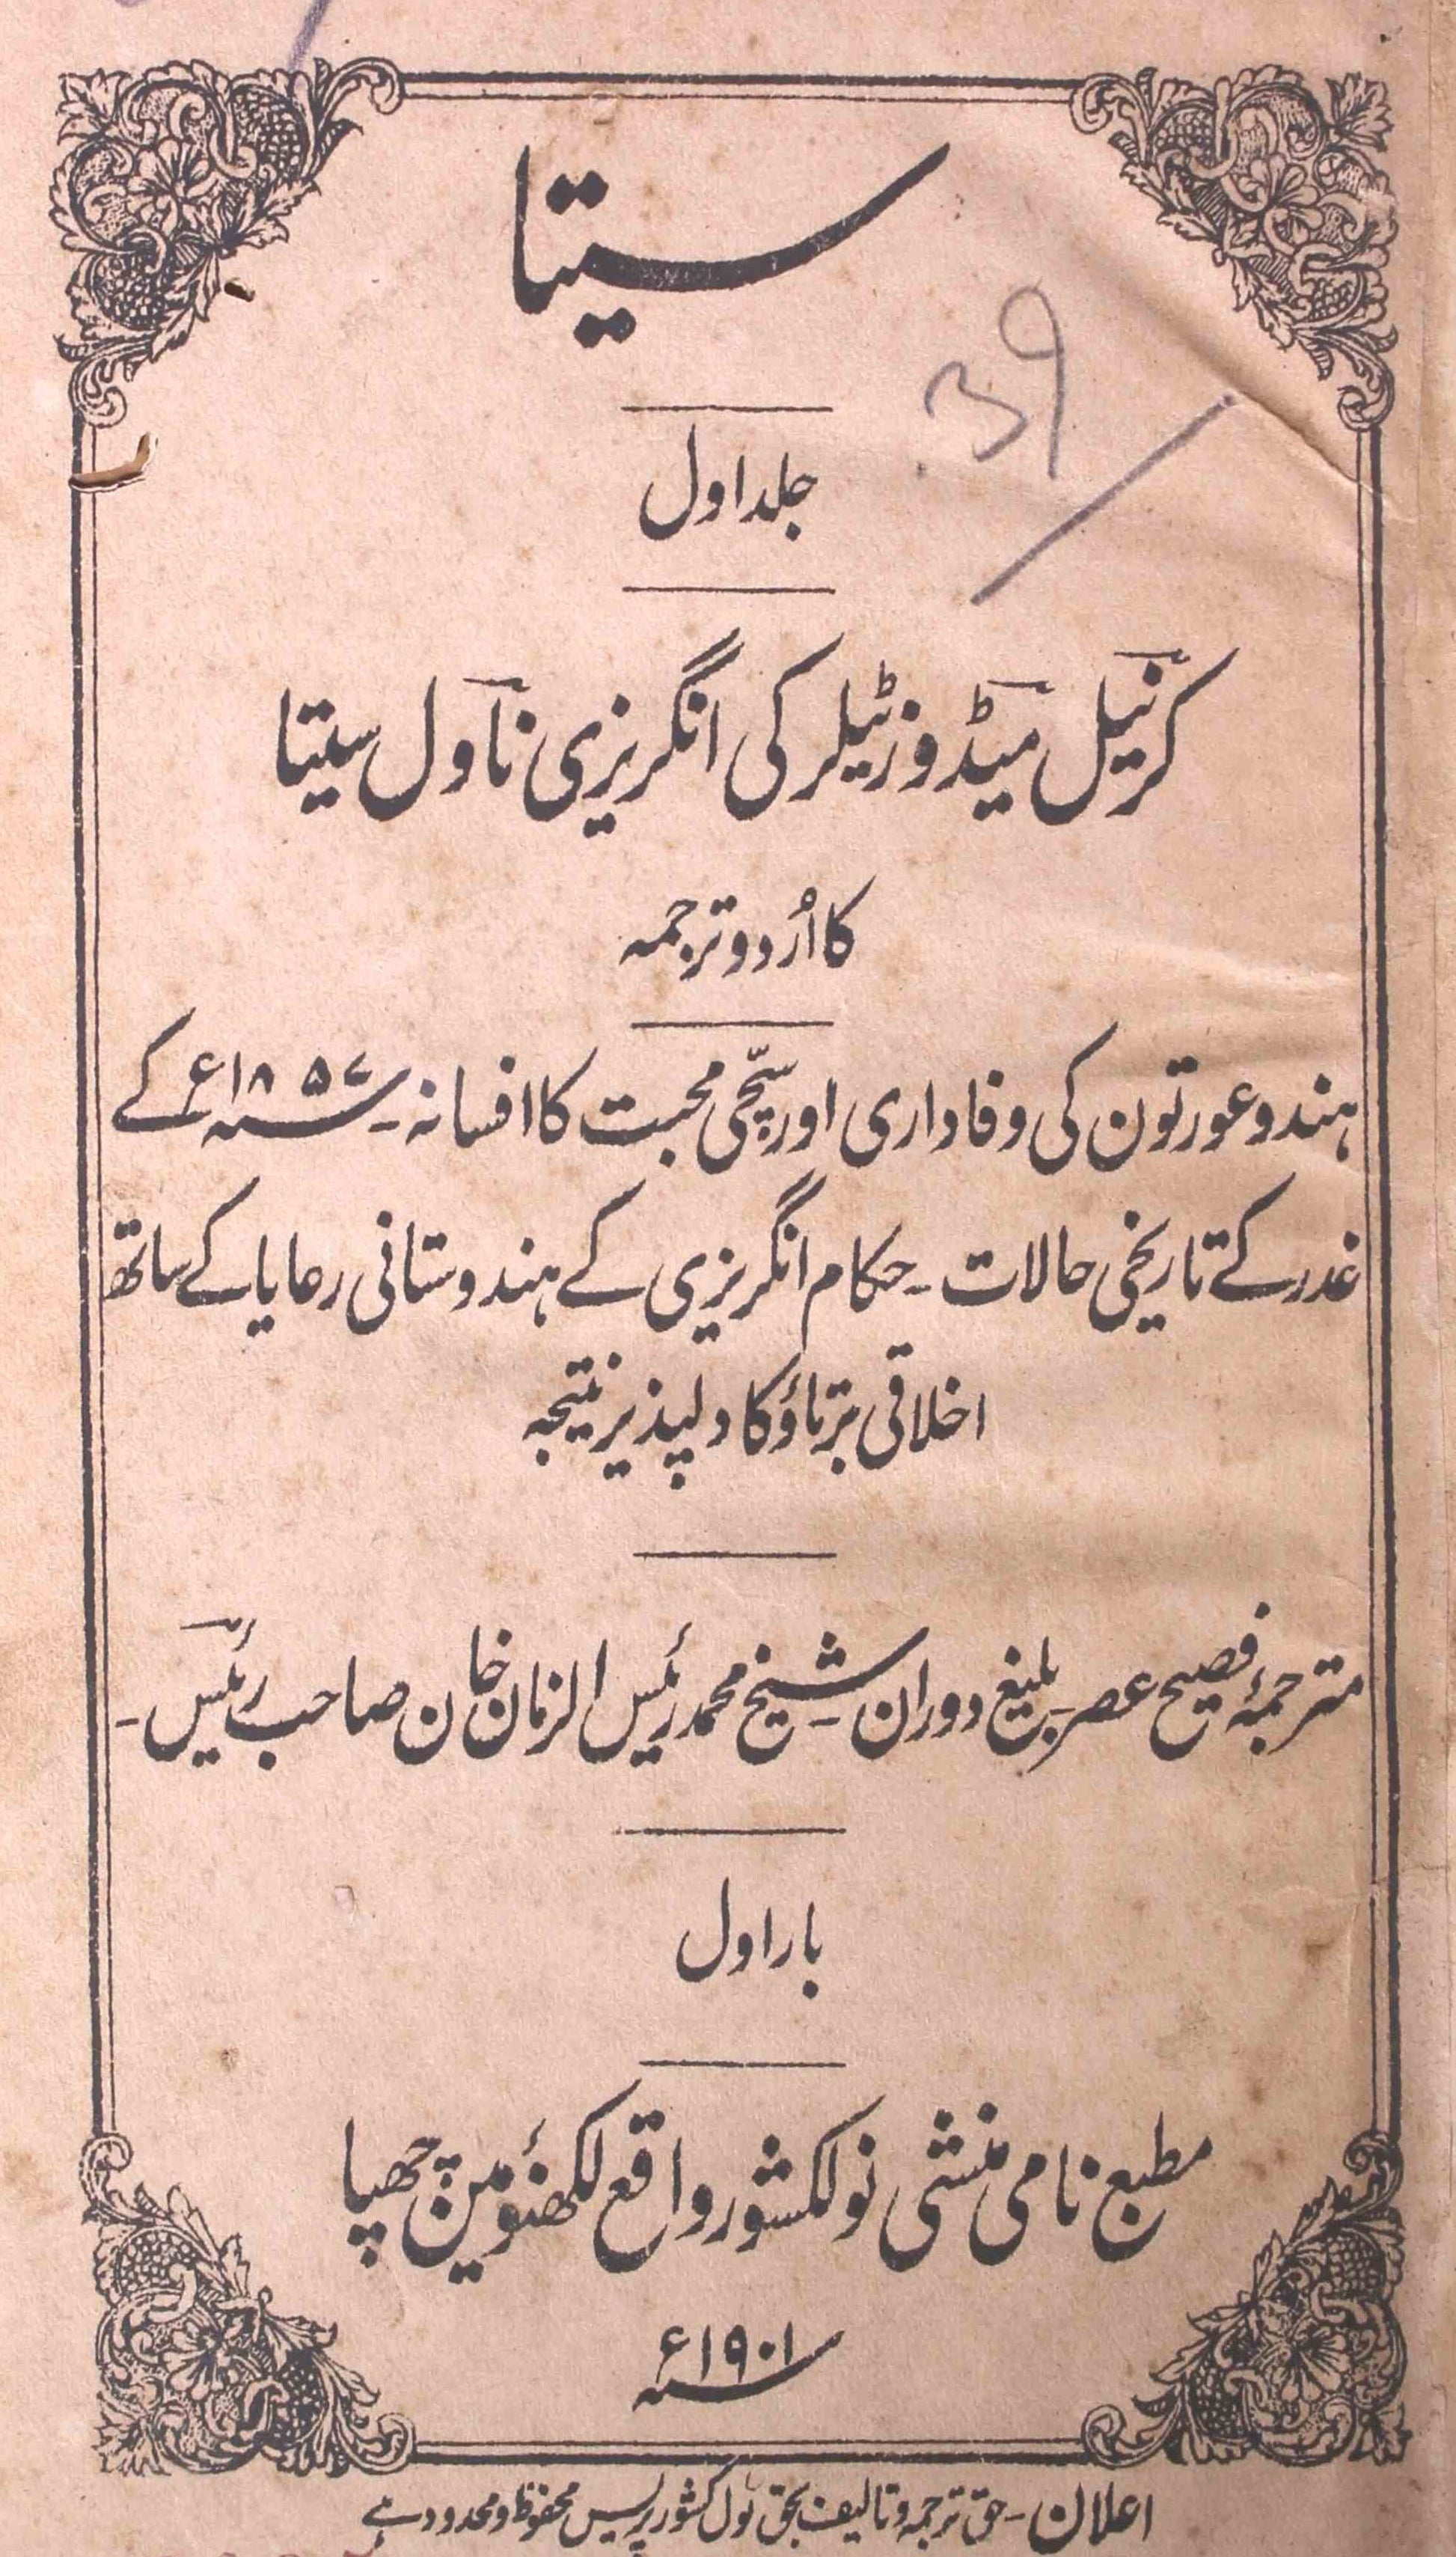 سیتا
39
جلد اول
کرنیل میڈوز ٹیلر کی انگریزی ناول سیتا
کا اُردو ترجمہ
ہندو عورتون کی وفاداری اور سچّی محبت کا افسانہ ۔ سنہ ۱۸۵۷ء کے
غدر کے تاریخی حالات ۔ حکام انگریزی کے ہندوستانی رعایا کے ساتھ
اخلاقی برتاؤ کا دلپذیر نتیجہ
مترجمۂ فصیح عصر بلیغ دوران ۔ شیخ محمد رئیس الزمان خان صاحب رئیس ۔
بار اول
مطبع نامی منشی نولکشور واقع لکھنؤ مین چھپا
سنہ ۱۹۰۱ء
اعلان ۔ حق ترجمہ و تالیف بحق نول کشور پریس محفوظ و محدود ہے